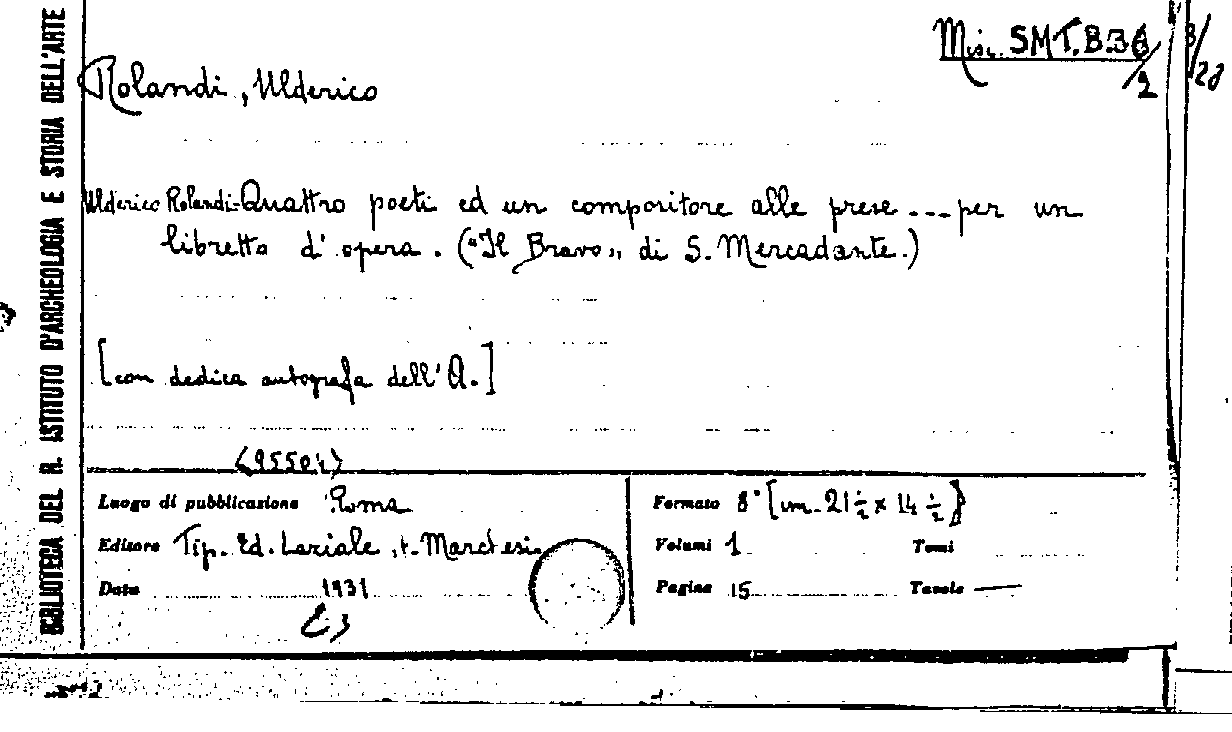 BIBLIOTECA DEL R. ISTITUTO D'ARCHEOLOGIA E STORIA DELL'ARTE
Misc. SMT. B36/2
Rolandi, Ulderico
Ulderico Rolandi-Quattro poeti ed un compositore alle prese ... per un
libretto d'opera. ("Il Bravo" di S. Mercadante.)
[con dedica autografa dell'A.]
Luogo di pubblicazione Roma
Editore Tip. Ed. Laziale, Marchesi
Data 1931
Formato 8° [cm. 21 ½ x 14 ½]
Volumi 1 Tomi
Pagine 15 Tavole —